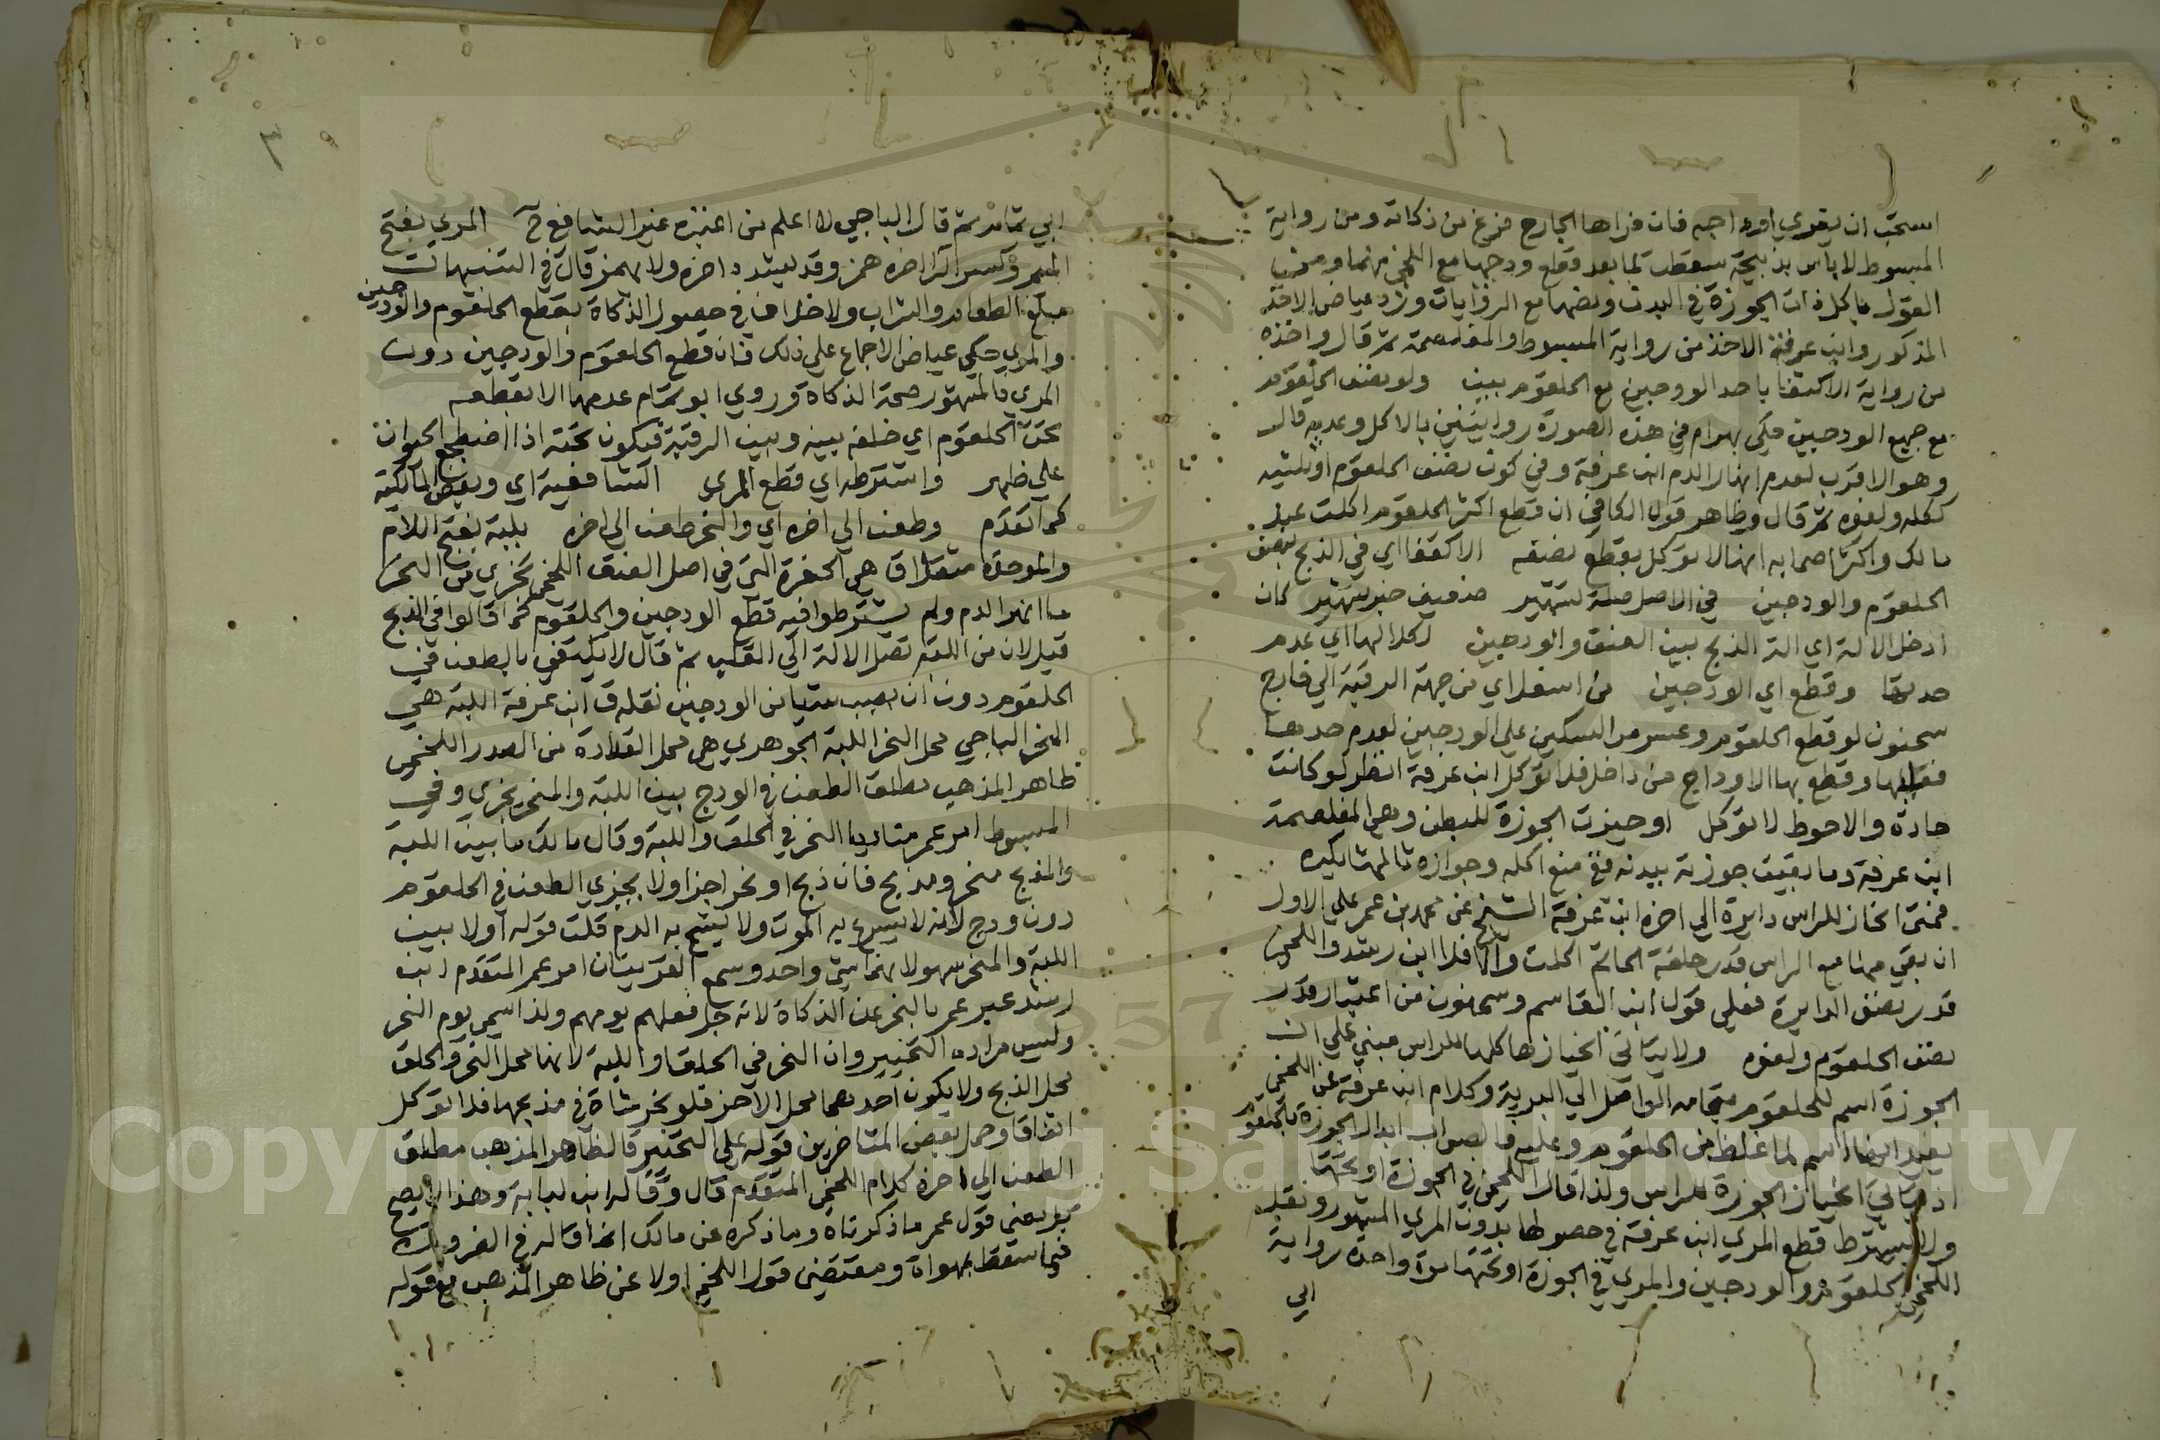 استحب ان يفري اوداجه فان فراها الجارح فرغ من ذكاته ومن رواية
المبسوط لا باس بذبيحة سقطت لما بعد قطع ودجها مع اللخمي منهما ومن
القول باكل ذات الجوزة في البدن وبعضها مع الروايات ورد عياض الاخذ
المذكور وابن عرفة الاخذ من رواية المبسوط والمغلصمة ثم قال واخذه
من رواية الاكتفا باحد الودجين مع الحلقوم يبين ولو نصف الحلقوم
مع جميع الودجين حكى بهرام في هذه الصورة روايتين بالاكل وعدمه قال
وهو الاقرب لعدم انهار الدم ابن عرفة وفي كون نصف الحلقوم او ثلثيه
ككله ولغوه ثم قال وظاهر قول الكافي ان قطع اكثر الحلقوم اكلت عند
مالك واكثر اصحابه انها لا توكل بقطع نصفه الاكتفا اي في الذبح بنصف
الحلقوم والودجين في الاصل صلة لشهر ضعيف خبر شهر كان
ادخل الالة اي الة الذبح بين العنق والودجين لكلالها اي عدم
حدتها وقطع اي الودجين من اسفل اي من جهة الرقبة الي خارج
سحنون لو قطع الحلقوم وعسر مر السكين على الودجين لعدم حدها
فقلبها وقطع بها الاوداج من داخل فلا توكل ابن عرفة انظر لو كانت
حادة والاحوط لا توكل او حيزت الجوزة للبطن وهي المغلصمة
ابن عرفة وما بقيت جوزته ببدنه ففي منع اكله وجوازه ثالثها يكره
فمتى انحاز للراس دايرة الي اخره ابن عرفة الشيخ عن محمد بن عمر على الاول
ان بقي منها مع الراس قدر حلقة الخاتم اكلت والا فلا ابن رشد واللخمي
قدر نصف الدايرة فعلى قول ابن القاسم وسحنون من اعتبار قدر
نصف الحلقوم ولغوه ولا يتاتى انحيازها كلها للراس مبني على ان
الجوزة اسم للحلقوم بتمامه الواصل الي الرية وكلام ابن عرفة عن اللخمي
يفيد ايضا اسم لما غلظ من الحلقوم وعليه فالصواب ابدال الجوزة بالحلقوم
اذ يتاتى انحياز الجوزة للراس ولذا قال اللخمي في الجوزة او تحتها
ولا يشترط قطع المري ابن عرفة في حصولها بدون المري المشهور ونقل
اللخمي الحلقوم والودجين والمري في الجوزة او تحتها مرة واحدة رواية
ابي
٣
ابي تمام ثم قال الباجي لا اعلم من اعتبره غير الشافعي المري بفتح
الميم وكسر الرا اخره همز وقد يشدد اخره ولا يهمز قال في التنبيهات
مبلغ الطعام والشراب ولا خلاف في حصول الذكاة بقطع الحلقوم والودجين
والمري حكى عياض الاجماع على ذلك فان قطع الحلقوم والودجين دون
المري فالمشهور صحة الذكاة وروي ابو تمام عدمها الا بقطعه
تحت الحلقوم اي خلفه بينه وبين الرقبة فيكون تحته اذا اضطجع الحيوان
على ظهره واشترطه اي قطع المري الشافعية اي وبعض المالكية
كما تقدم وطعن الي اخره اي والنحر طعن الي اخره بلبة بفتح اللام
والموحدة مثقلا ق هي الحفرة التي في اصل العنق اللخمي يجزي من النحر
ما انهر الدم ولم يشترطوا فيه قطع الودجين والحلقوم كما قالوا في الذبح
قيل لان من اللبة تصل الالة الي القلب ثم قال لا يكتفي بالطعن في
الحلقوم دون ان يصيب شيا من الودجين نقله ق ابن عرفة اللبة هي
النحر الباجي محل النحر اللبة الجوهري هي محل القلادة من الصدر اللخمي
ظاهر المذهب مطلق الطعن في الودج بين اللبة والمنحر يجزي وفي
المبسوط امر عمر مناديا النحر في الحلق واللبة وقال مالك ما بين اللبة
والمذبح منحر ومذبح فان ذبح او نحر اجزا ولا يجزي الطعن في الحلقوم
دون ودج لانه لا يسرع به الموت ولا يشج به الدم قلت قوله اولا بين
اللبة والمنحر سهو لانهما شي واحد وسمع القرينان امر عمر المتقدم ابن
رشد عبر عمر بالنحر عن الذكاة لانه جل فعلهم يومهم ولذا سمي يوم النحر
وليس مراده التخيير وان النحر في الحلق واللبة لانها محل النحر والحلق
محل الذبح ولا يكون احدهما محل الاخر فلو نحر شاة في مذبحها فلا توكل
اتفاقا وحمل بعض المتاخرين قوله على التخيير قال ظاهر المذهب مطلق
الطعن الي اخره كلام اللخمي المتقدم قال وقاله ابن لبابة وهذا لا يصح
بل معنى قول عمر ما ذكرناه وما ذكره عن مالك انما قاله في الضرورة
فيما سقط بمهواة ومقتضى قول اللخمي اولا عن ظاهر المذهب مع قوله
Copyright © King Saud University
1957